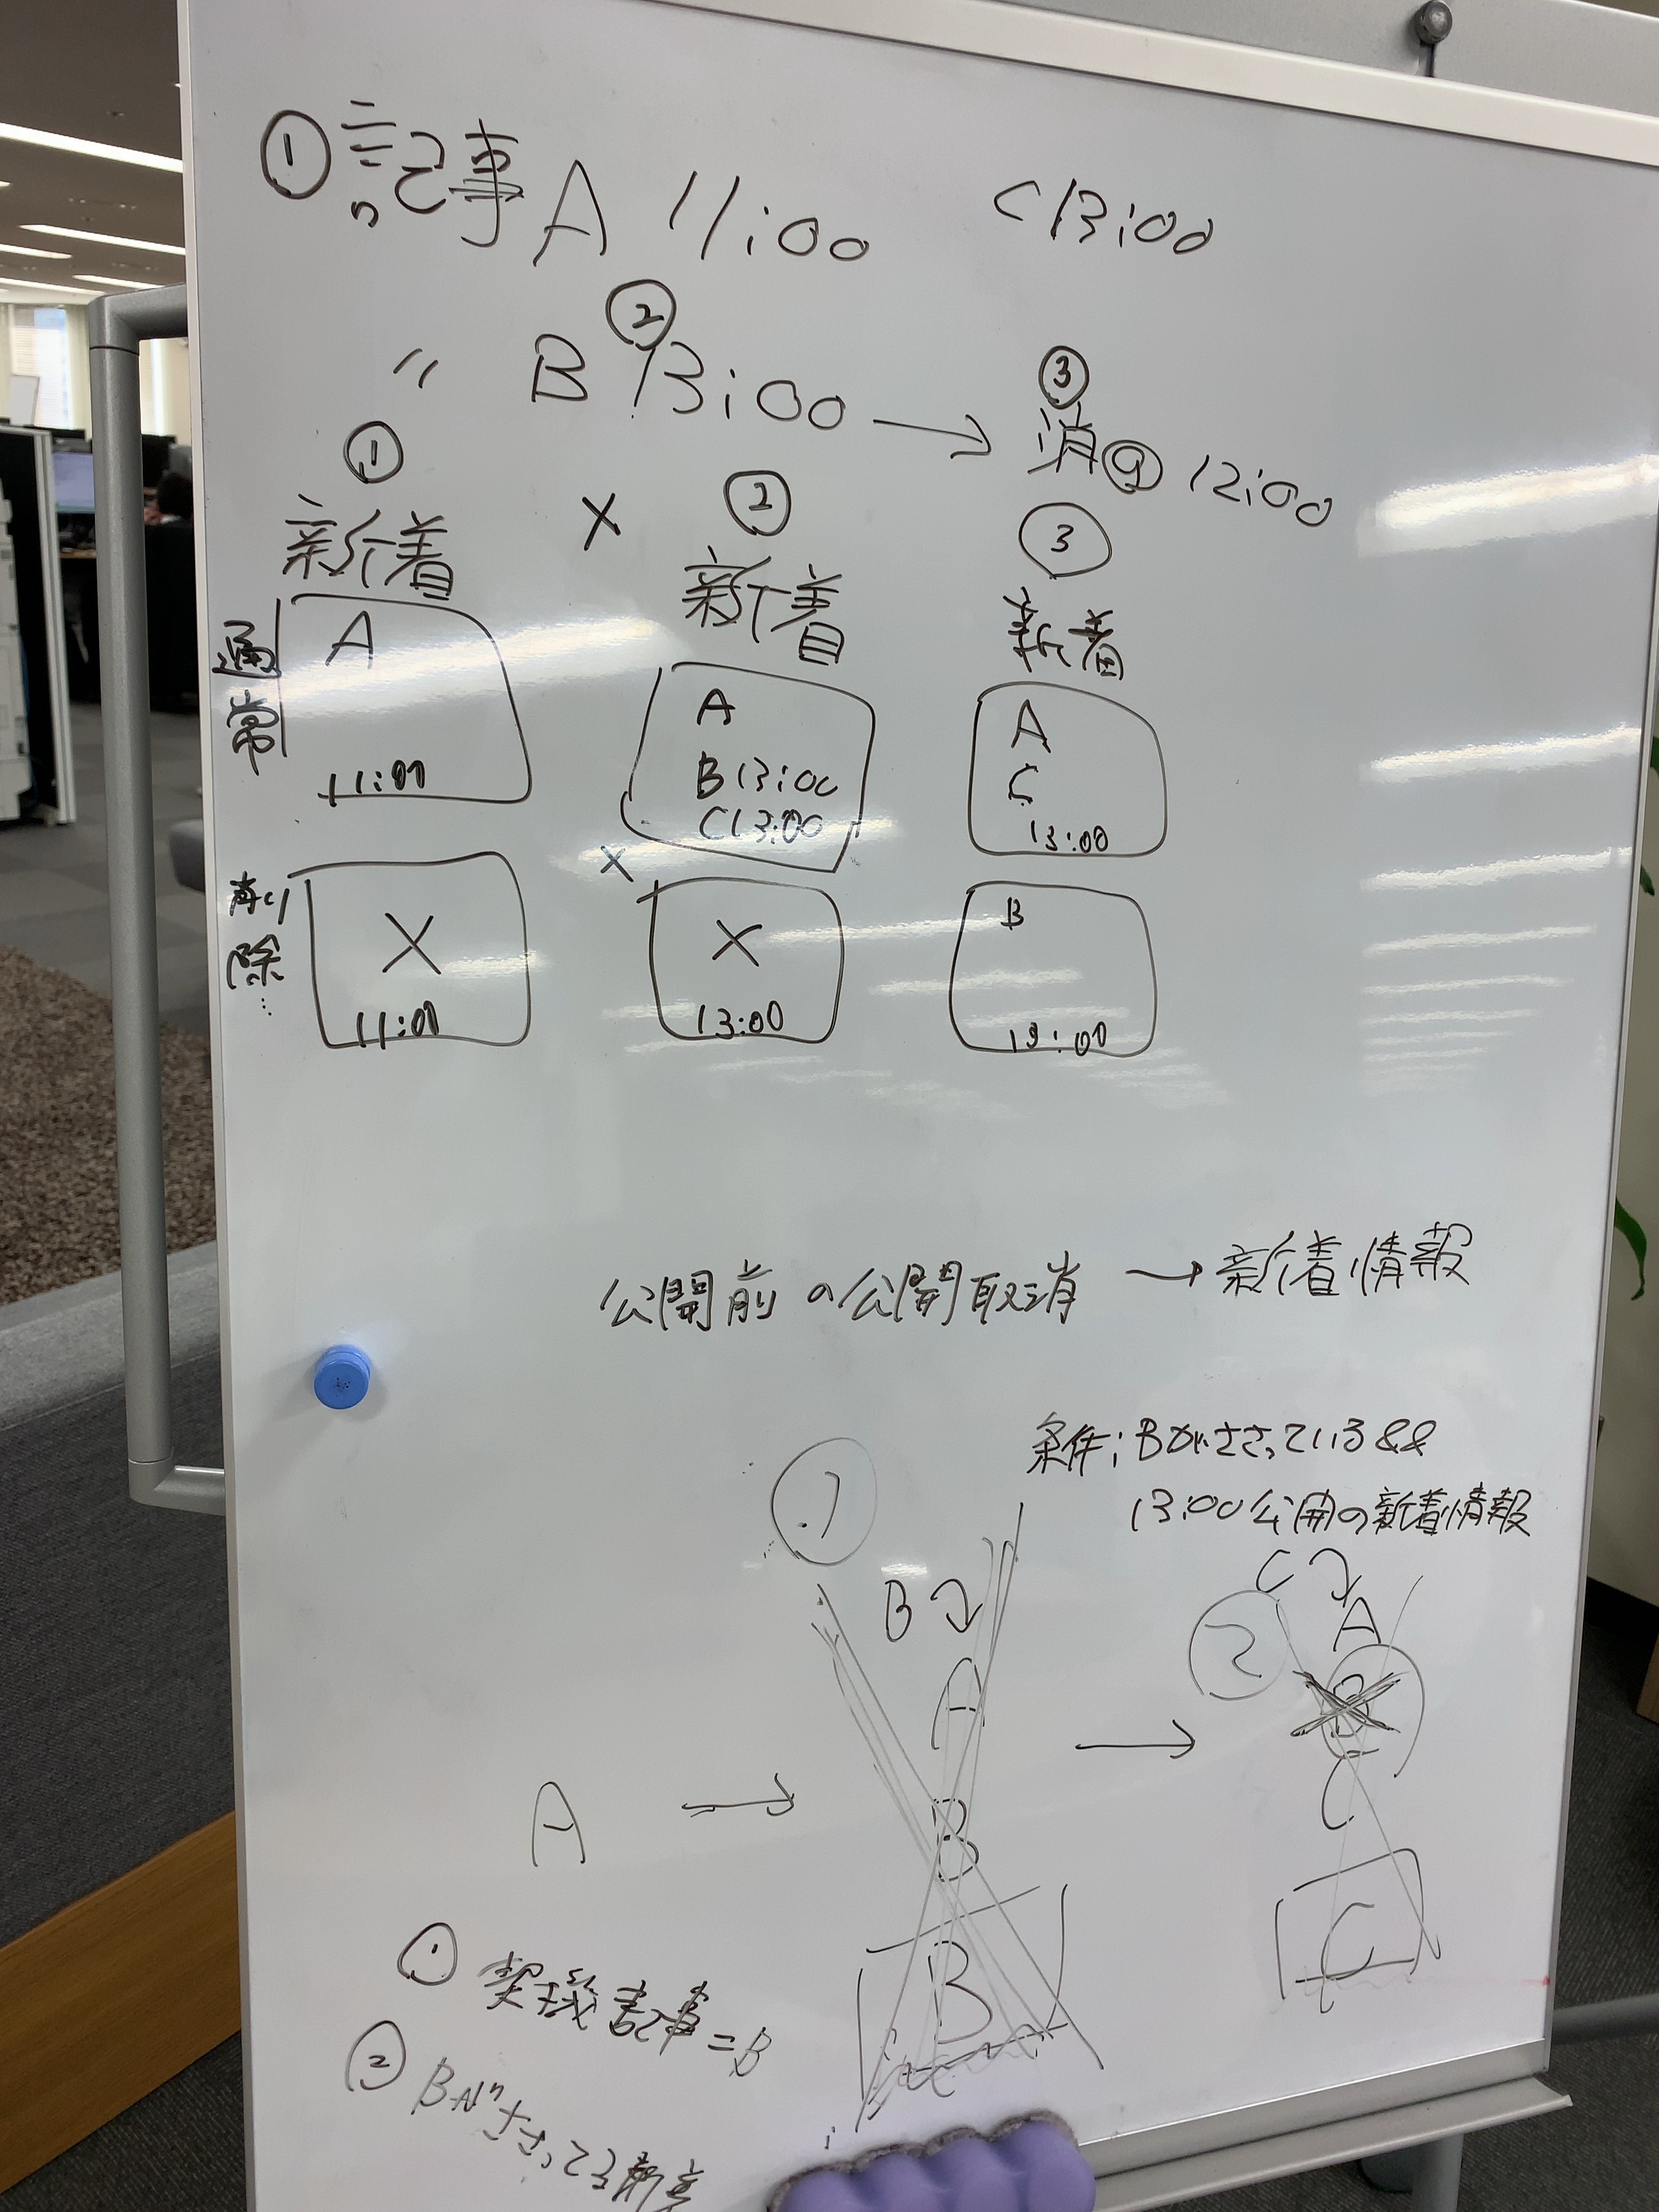 ① 記事 A 11:00 C 13:00
〃 B ② 13:00 → ③ 消 12:00
① 新着 × ② 新着 ③ 新着
通常
A
11:00
A
B 13:00
C 13:00
A
C
13:00
×
削除
×
11:00
×
13:00
B
13:00
公開前の公開取消 → 新着情報
条件: Bがささっている &&
13:00公開の新着情報
①
B
A
B
B
A →
→
②
C
A
B
C
C
① 契機記事=B
② Bがささってる新着